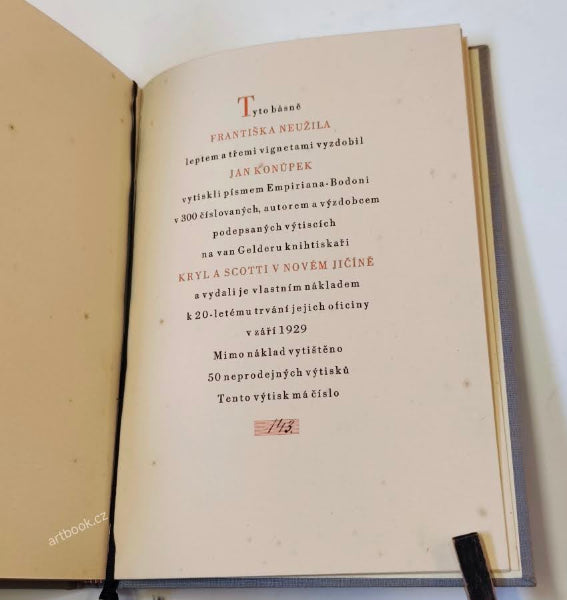 Tyto básně
FRANTIŠKA NEUŽILA
leptem a třemi vignetami vyzdobil
JAN KONŮPEK
vytiskli písmem Empiriana-Bodoni
v 300 číslovaných, autorem a výzdobcem
podepsaných výtiscích
na van Gelderu knihtiskaři
KRYL A SCOTTI V NOVÉM JIČÍNĚ
a vydali je vlastním nákladem
k 20-letému trvání jejich oficiny
v září 1929
Mimo náklad vytištěno
50 neprodejných výtisků
Tento výtisk má číslo
143.
artbook.cz